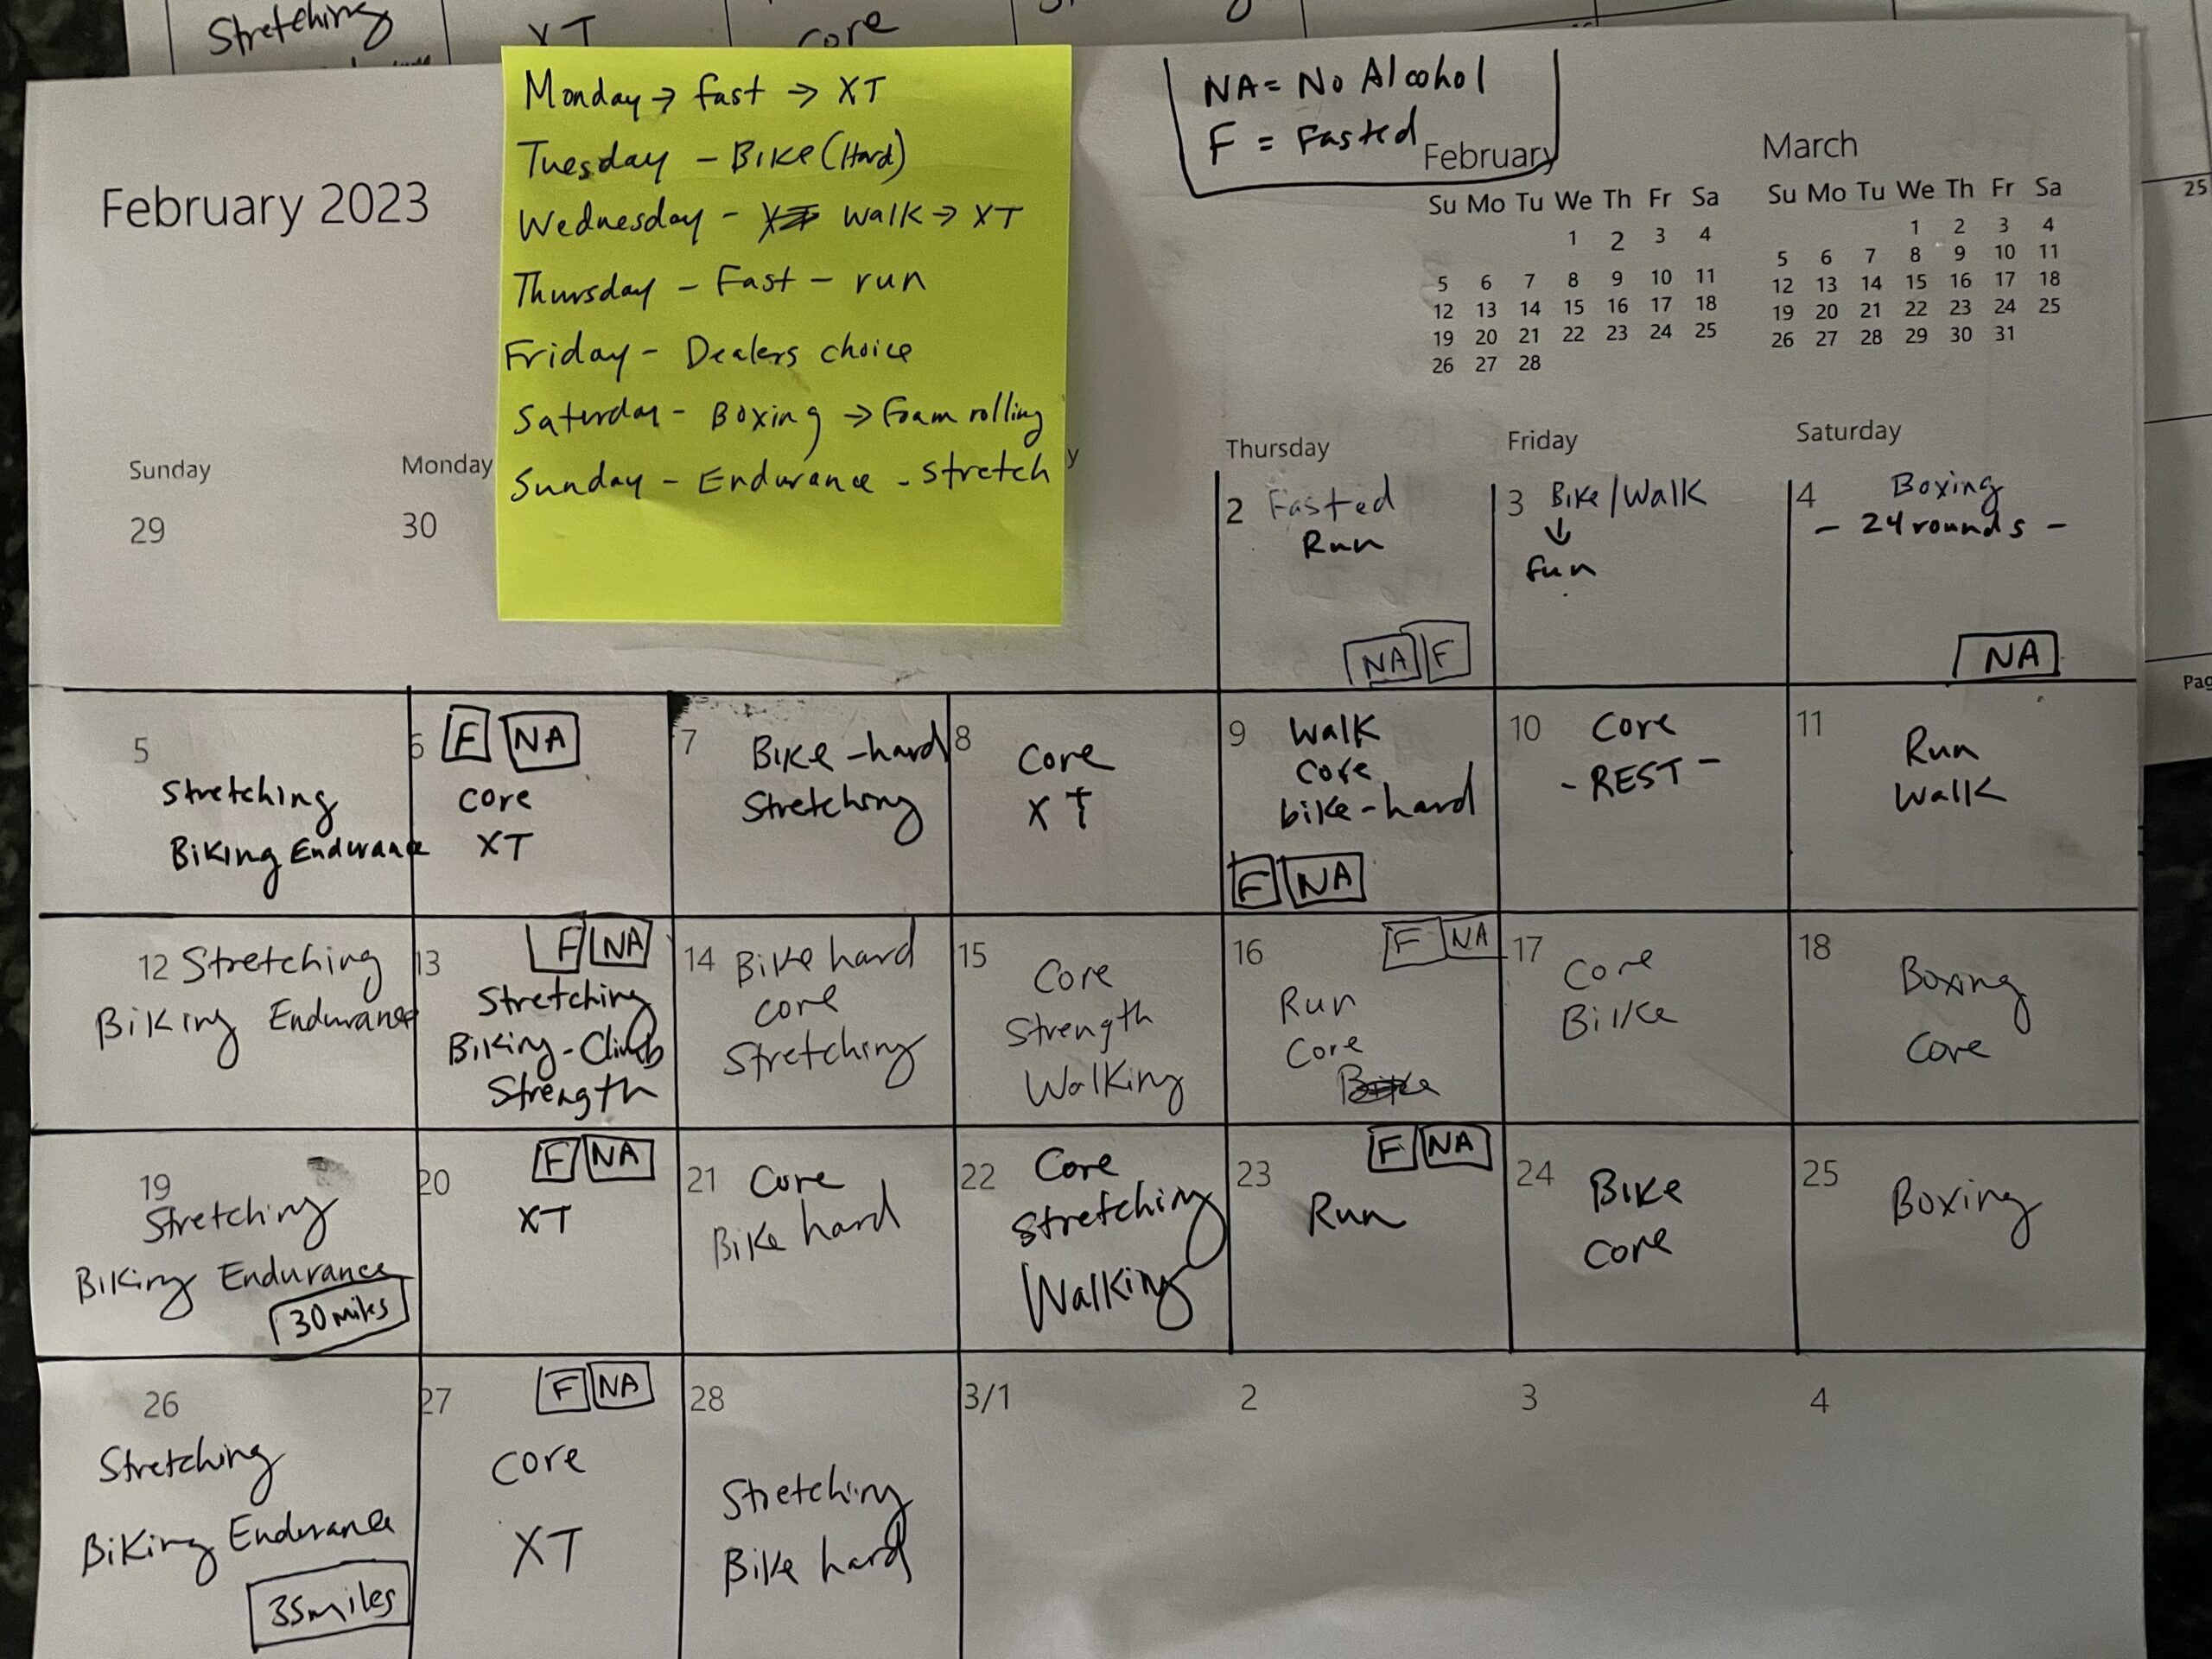 Stretching
XT
core
Monday → fast → XT
Tuesday - Bike (Hard)
Wednesday - XT walk → XT
Thursday - Fast - run
Friday - Dealers choice
Saturday - Boxing → Foam rolling
Sunday - Endurance - stretch
NA = No Alcohol
F = Fasted
February 2023
February
Su Mo Tu We Th Fr Sa
1 2 3 4
5 6 7 8 9 10 11
12 13 14 15 16 17 18
19 20 21 22 23 24 25
26 27 28
March
Su Mo Tu We Th Fr Sa
1 2 3 4
5 6 7 8 9 10 11
12 13 14 15 16 17 18
19 20 21 22 23 24 25
26 27 28 29 30 31
25
Pag
Sunday
Monday
y
Thursday
Friday
Saturday
29
30
2 Fasted
Run
NA F
3 Bike/Walk
↓
fun
4 Boxing
- 24 rounds -
NA
5
Stretching
Biking Endurance
6 F NA
core
XT
7 Bike - hard
Stretching
8 Core
XT
9 Walk
core
bike - hard
F NA
10 Core
- REST -
11 Run
Walk
12 Stretching
Biking Endurance
13 F NA
Stretching
Biking - Climb
Strength
14 Bike hard
core
Stretching
15 Core
Strength
Walking
16 F NA
Run
Core
Bike
17 Core
Bike
18 Boxing
Core
19
Stretching
Biking Endurance
30 miles
20 F NA
XT
21 Core
Bike hard
22 Core
Stretching
Walking
23 F NA
Run
24 Bike
Core
25 Boxing
26
Stretching
Biking Endurance
35 miles
27 F NA
Core
XT
28
Stretching
Bike hard
3/1
2
3
4